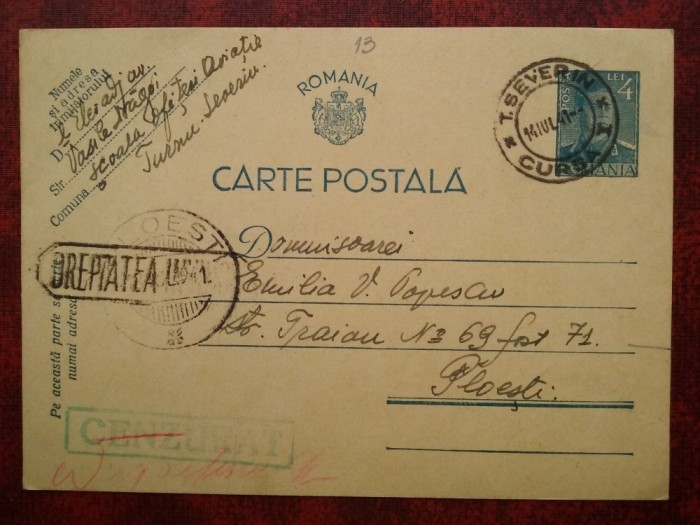 13
Numele
și adresa
trimițătorului
Elev adj av.
D Vasile
Str. Școala Ofițeri Aviație
Comuna Turnu Severin.
ROMANIA
CARTE POSTALĂ
T. SEVERIN
14 IUL. 41
CURSA
POSTA LEI 4
ROMANIA
PLOEȘTI
DREPTATEA LUMII
941.
Domnisoarei
Emilia V. Popescu
Str. Traian No 69 fost 71.
Ploești.
Pe această parte se scrie
numai adresa
CENZURAT